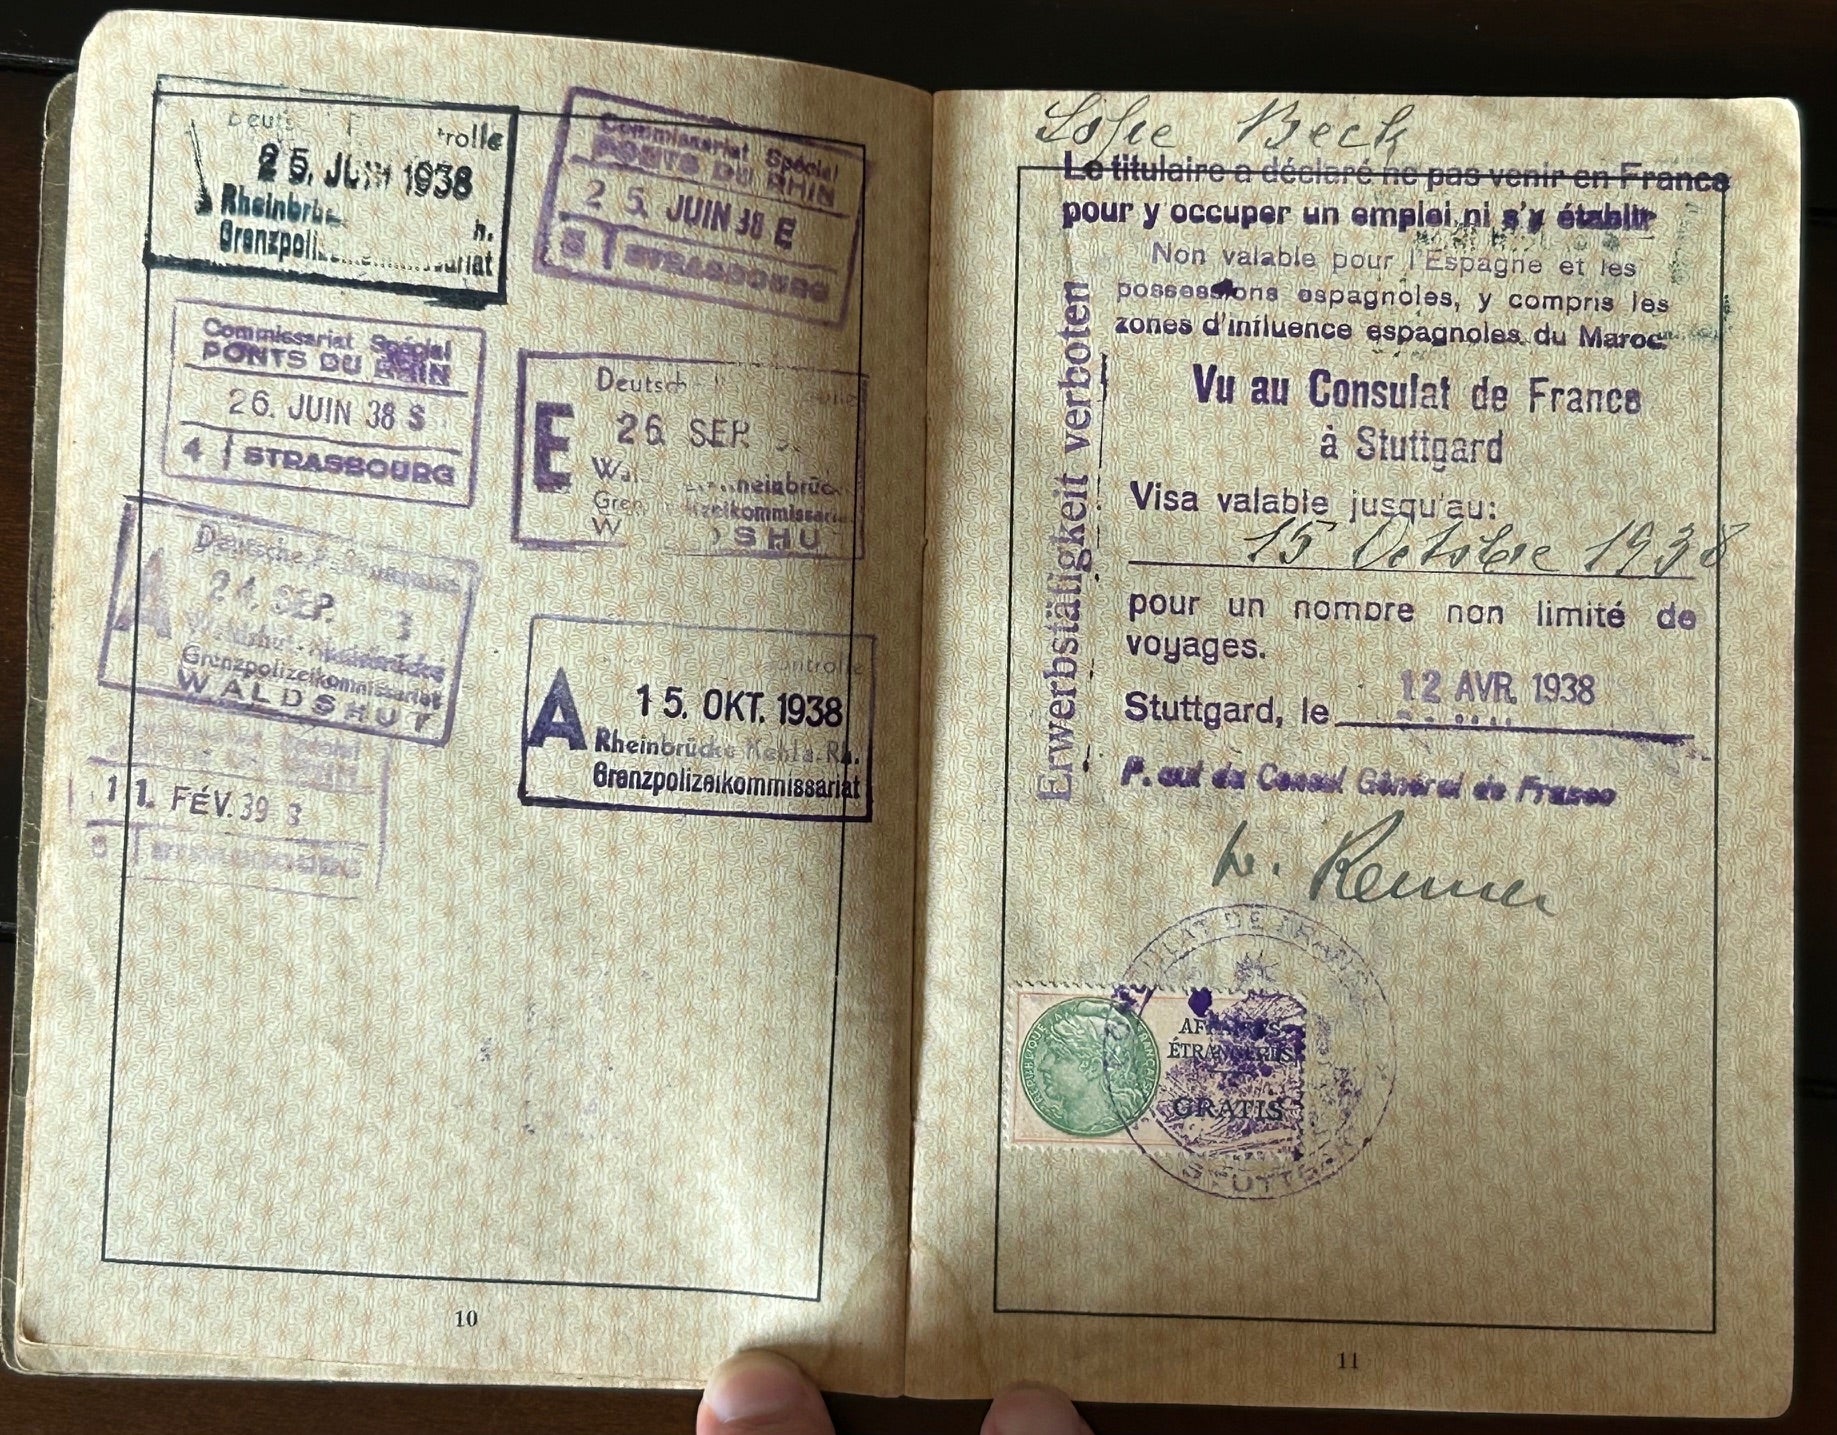 25. JUN 1938
Rheinbrü
h.
Grenzpoli
Commissariat Spécial
PONTS DU RHIN
25. JUIN 38 E
STRASBOURG
Commissariat Spécial
PONTS DU RHIN
26. JUIN 38 S
4 STRASBOURG
Deutsch
E 26 SEP.
neinbrüc
Gren zeikommissari
W DSHU
A Deutsche
24. SEP. 3
Grenzpolizeikommissariat
WALDSHUT
A ontrolle
15. OKT. 1938
Rheinbrücke Kehl a. Rh.
Grenzpolizeikommissariat
11. FÉV. 39
10
Beck
Le titulaire a déclaré ne pas venir en France
pour y occuper un emploi ni s'y établir
Non valable pour l'Espagne et les
possessions espagnoles, y compris les
zones d'influence espagnoles du Maroc.
Erwerbstätigkeit verboten
Vu au Consulat de France
à Stuttgard
Visa valable jusqu'au:
15 Octobre 1938
pour un nombre non limité de
voyages.
Stuttgard, le 12 AVR. 1938
Consul Général de France
CONSULAT DE FRANCE
STUTTGART
RÉPUBLIQUE FRANÇAISE
AFFAIRES
ÉTRANGÈRES
GRATIS
11